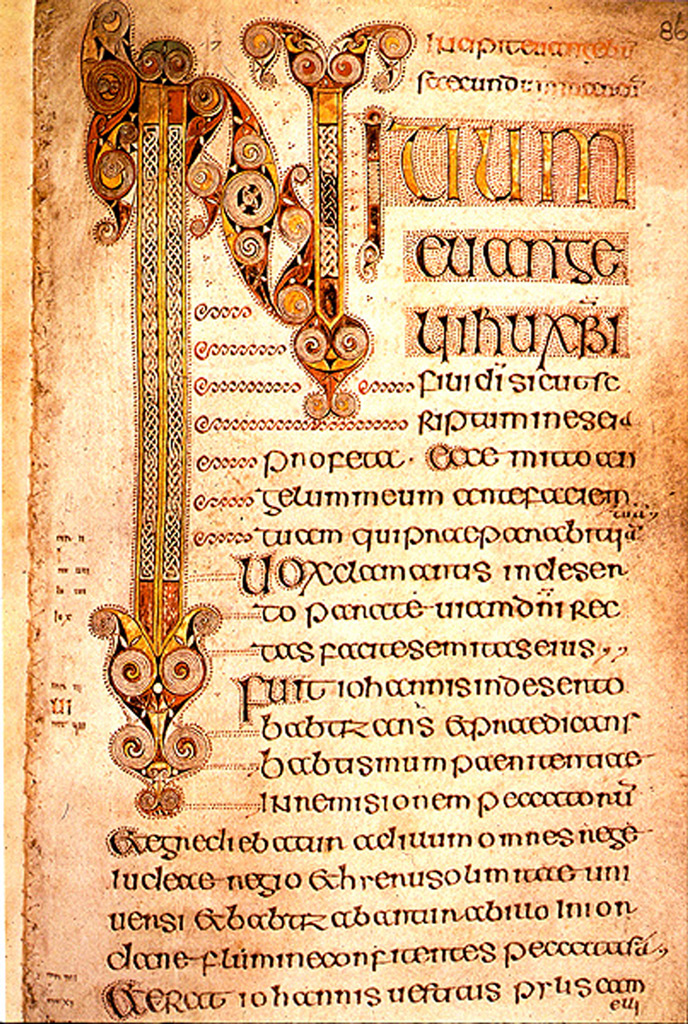 86
Incipit euangelii
secundum marcum
INITIUM
euange
lii ihu xpi
fili di sicut sc
riptum in eseia
profeta · Ecce mitto an
gelum meum ante faciem
tuam qui praeparabit uia
tuam
Uox clamantis in deser
to parate uiam dni rec
tas facite semitas eius
Fuit iohannis in deserto
babtizans & praedicans
babtismum paenitentiae
in remisionem peccatorum
& egrediebatur ad illum omnes rege
iudeae regio & hierusolimitae uni
uersi & babtizabantur ab illo in ior
dane flumine confitentes peccata sua
& erat iohannis uestitus pylis cam
elli